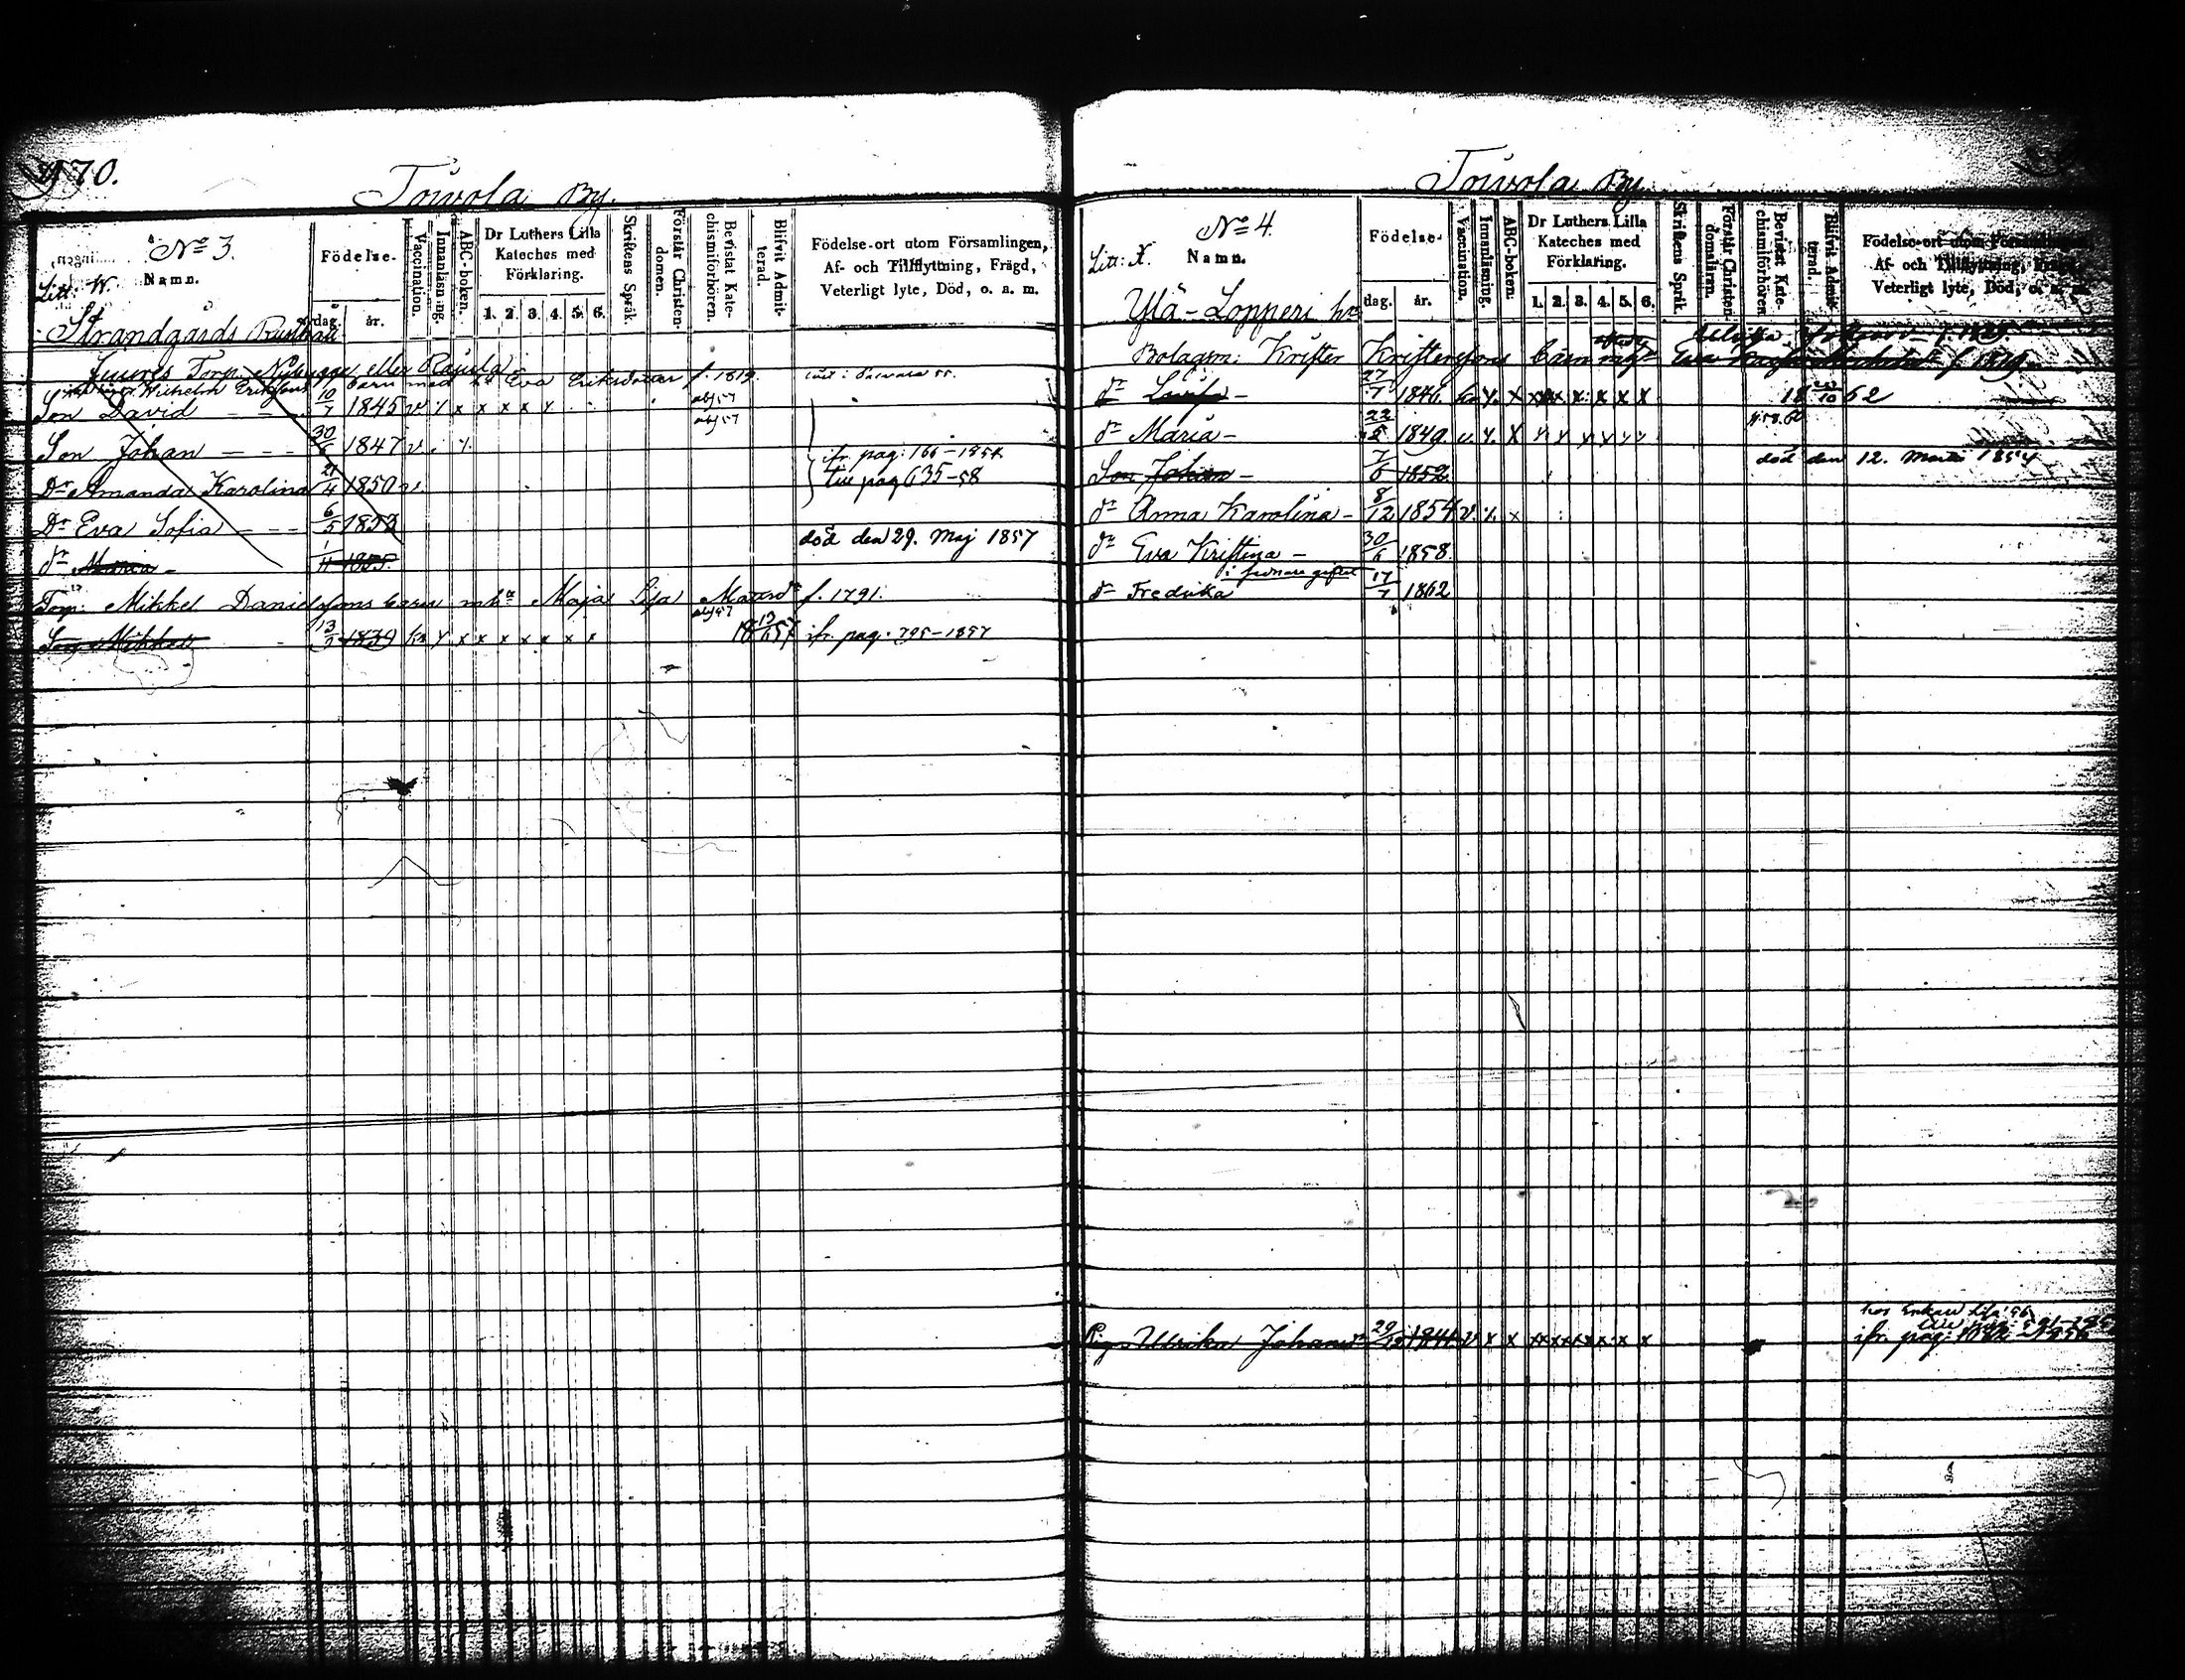 970.
Toivola By.
No 3.
Litt. W.
Namn.
Födelse-
dag.
år.
Vaccination.
Innanläsning.
ABC-boken.
Dr Luthers Lilla Kateches med Förklaring.
1. 2. 3. 4. 5. 6.
Skriftens Språk.
Förstår Christendomen.
Bevistat Katechismiförhören.
Blifvit Admitterad.
Födelse-ort utom Församlingen,
Af- och Tillflyttning, Frägd,
Veterligt lyte, Död, o. a. m.
Strandgårds Rusthåll
Torp. Nybygge eller Rajula
Wilhelm Erikssons barn med h. Eva Eriksdotter f. 1819.
Son David 10/7 1845 v x x x x x abj 57
Son Johan 30/6 1847 v.
ifr. pag: 166-1854
Dr Amanda Karolina 21/4 1850 v.
till pag 635-58
Dr Eva Sofia 6/5 1853
dr Maria 1/11 1855
död den 29. Maj 1857
Torp: Mikkel Danielssons barn mhu Maja Lisa Matsdr f. 1791.
Son Mikkel 13/9 1839 x x x x x x x abj 57 18 13/6 57 ifr. pag. 795-1857
Toivola By
No 4.
Litt: X.
Namn.
Födelse-
dag.
år.
Vaccination.
Innanläsning.
ABC-boken:
Dr Luthers Lilla Kateches med Förklaring.
1. 2. 3. 4. 5. 6.
Skriftens Språk.
Förstår Christendomsläran.
Bevistat Katechismiförhören.
Blifvit Admitterad.
Födelse-ort utom Församlingen,
Af- och Tillflyttning, Frägd,
Veterligt lyte, Död, o. a. m.
Ylä-Lopperi hn
Bolagsm: Krister Kristerssons barn
dr Lovisa - 27/7 1846 x x x x x x x 18 /10 62
dr Maria - 22/5 1849. v. x x x x x
Son Johan - 7/6 1852 död den 12. Martii 1854
dr Anna Karolina - 8/12 1854 v. x
dr Eva Kristina - 30/6 1858.
i sednare giftet
dr Fredrika 17/7 1862
Pig. Ulrika Johansdr 29/12 1841 v x x x x x x x x
ifr. pag: 1856